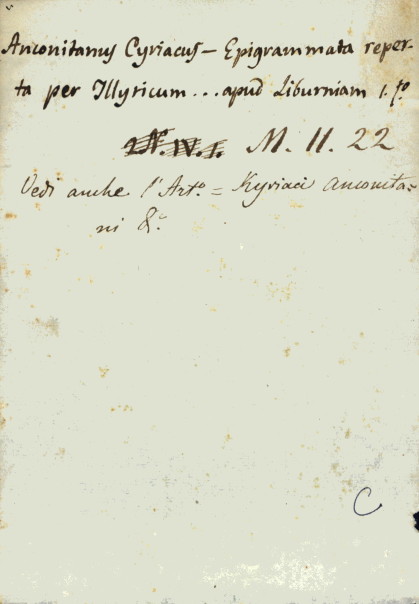 Anconitanus Cyriacus – Epigrammata reper-
ta per Illyricum ... apud Liburniam 1. fo
M. II. 22
Vedi anche l'Arto = Kyriaci Anconita=
ni &c
C